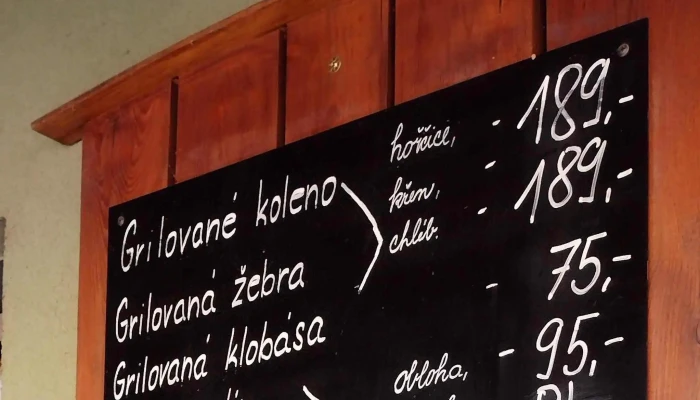 Grilované koleno
hořčice, - 189,-
Grilovaná žebra
křen, - 189,-
chléb. -
Grilovaná klobása - 75,-
obloha, - 95,-